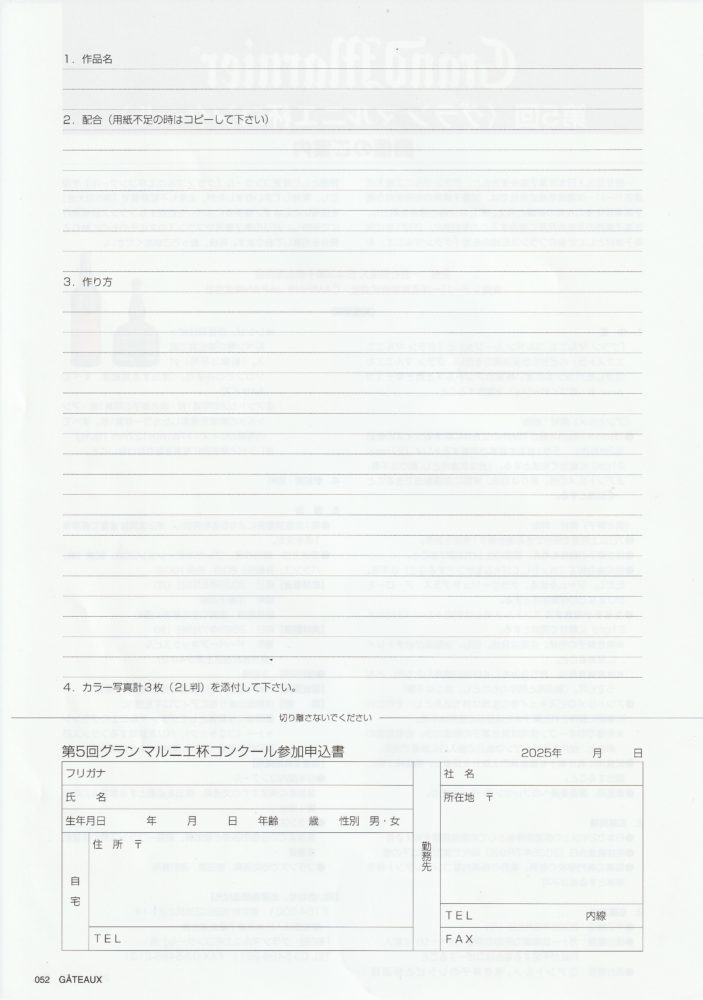 1．作品名
2．配合（用紙不足の時はコピーして下さい）
3．作り方
4．カラー写真計3枚（2L判）を添付して下さい。
切り離さないでください
第5回グラン マルニエ杯コンクール参加申込書
2025年　　月　　日
フリガナ
氏　名
生年月日　　年　　月　　日　年齢　　歳　性別　男・女
自宅
住　所　〒
TEL
勤務先
社　名
所在地　〒
TEL　　内線
FAX
052　GÂTEAUX